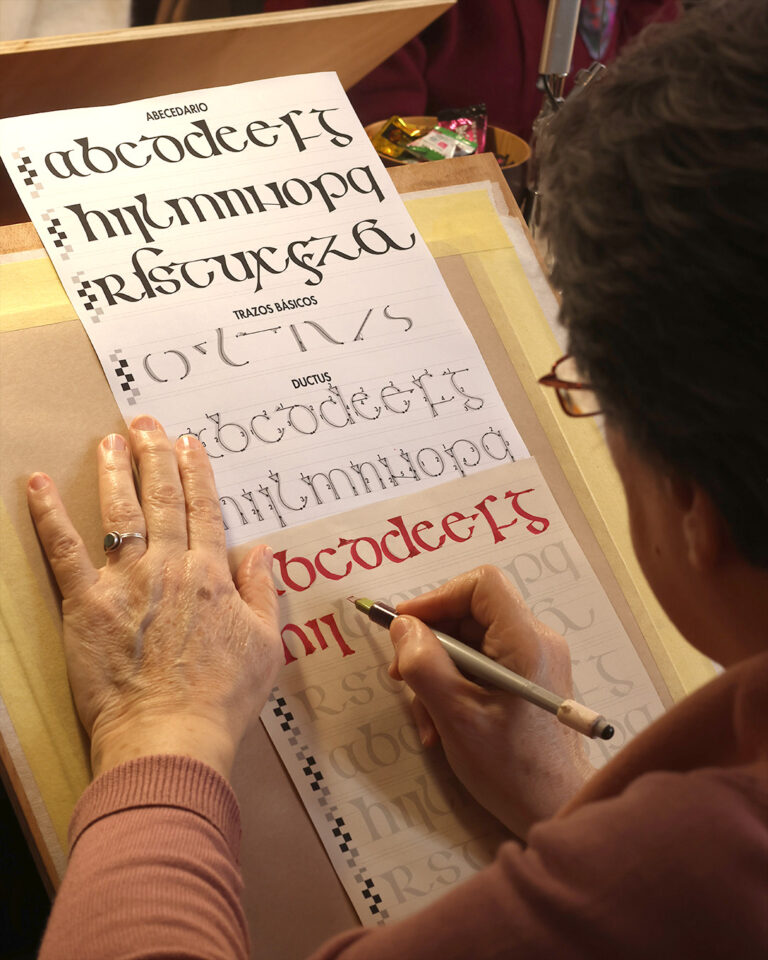 ABECEDARIO
abcddeefg
hijlmnnopq
rſstuxyz&
TRAZOS BÁSICOS
DUCTUS
abcddeefg
hijlmnnopq
abcddeefg
hij